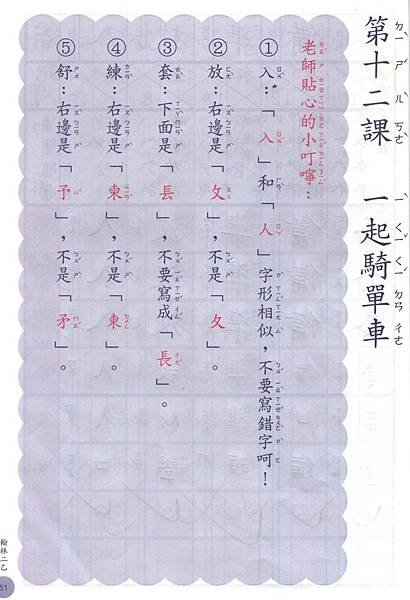 第十二課 一起騎單車
老師貼心的小叮嚀：
①入：「入」和「人」字形相似，不要寫錯字呵！
②放：右邊是「攵」，不是「夂」。
③套：下面是「镸」，不要寫成「長」。
④練：右邊是「柬」，不是「東」。
⑤舒：右邊是「予」，不是「矛」。
翰林二乙
51